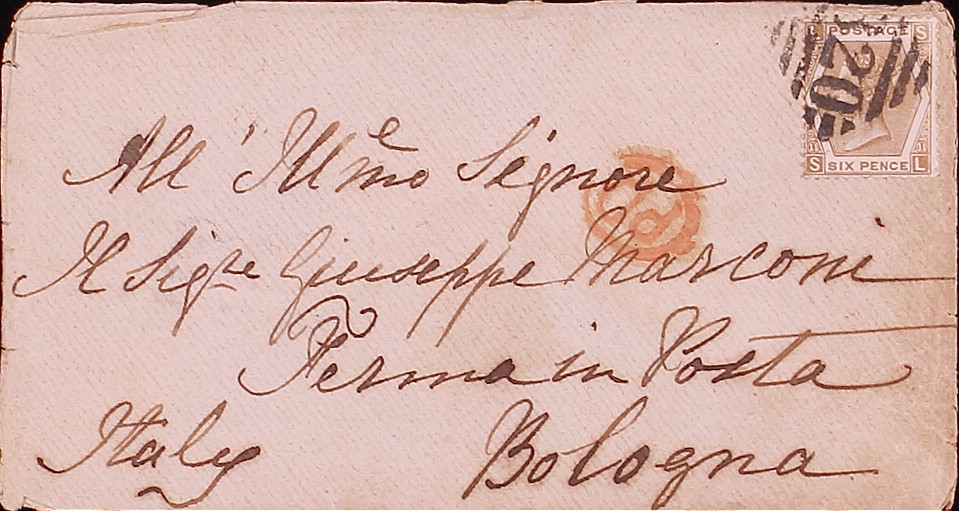 L POSTAGE S
20
S SIX PENCE L
All' Illmo e Signore
Il Sigre Giuseppe Marconi
Ferma in Posta
Italy Bologna